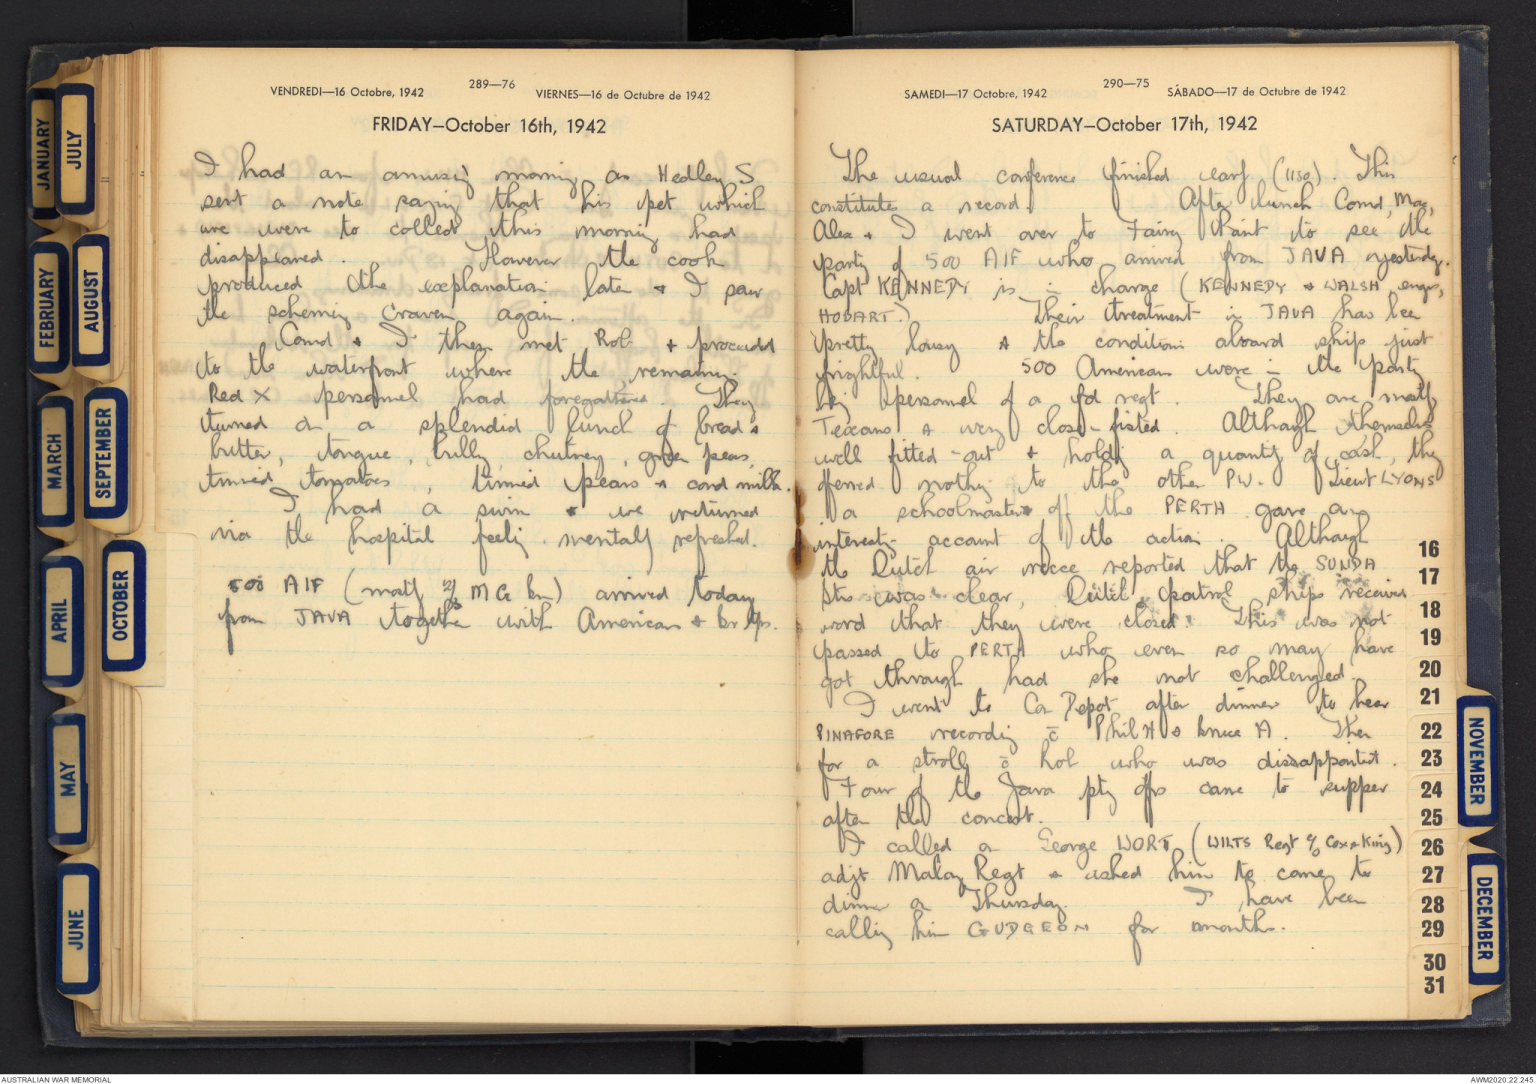 JANUARY
FEBRUARY
MARCH
APRIL
MAY
JUNE
JULY
AUGUST
SEPTEMBER
OCTOBER
289—76
VENDREDI—16 Octobre, 1942 VIERNES—16 de Octubre de 1942
FRIDAY—October 16th, 1942
I had an amusing morning as Hedley S
sent a note saying that his pet which
we were to collect this morning had
disappeared. However the cook
produced the explanation later & I saw
the scheming Craven again.
Comd & I then met Rob & proceeded
to the waterfront where the remaining
Red X personnel had foregathered. They
turned on a splendid lunch of bread &
butter, tongue, bully, chutney, green peas,
tinned tomatoes, tinned pears & cond milk.
I had a swim & we returned
via the hospital feeling mentally refreshed.
500 AIF (mostly 2/3 MG bn) arrived today
from JAVA together with American & br tps.
290—75
SAMEDI—17 Octobre, 1942 SÁBADO—17 de Octubre de 1942
SATURDAY—October 17th, 1942
The usual conference finished early (1150). This
constitutes a record. After lunch Comd, Mac,
Alex & I went over to Fairy Point to see the
party of 500 AIF who arrived from JAVA yesterday.
Capt KENNEDY is in charge (KENNEDY & WALSH, engrs,
HOBART.) Their treatment in JAVA has been
pretty lousy & the conditions aboard ship just
frightful. 500 Americans were in the party
being personnel of a fd regt. They are mostly
Texans & very close-fisted. Although themselves
well fitted-out & holding a quantity of cash, they
offered nothing to the other PW. Lieut LYONS
a schoolmaster off the PERTH gave an
interesting account of the action. Although
the Dutch air recce reported that the SUNDA
Strs was clear, Dutch patrol ships received
word that they were closed. This was not
passed to PERTH who even so may have
got through had she not challenged.
I went to Con Depot after dinner to hear
PINAFORE recording c̄ Phil H & bruce A. Then
for a stroll c̄ hob who was dissappointed.
Four of the Java pty offrs came to supper
after the concert.
I called on George WORT (WILTS Regt c/o Cox & King)
adjt Malay Regt & asked him to come to
dinner on Thursday. I have been
calling him GUDGEON for months.
16
17
18
19
20
21
22
23
24
25
26
27
28
29
30
31
NOVEMBER
DECEMBER
AUSTRALIAN WAR MEMORIAL
AWM2020.22.245